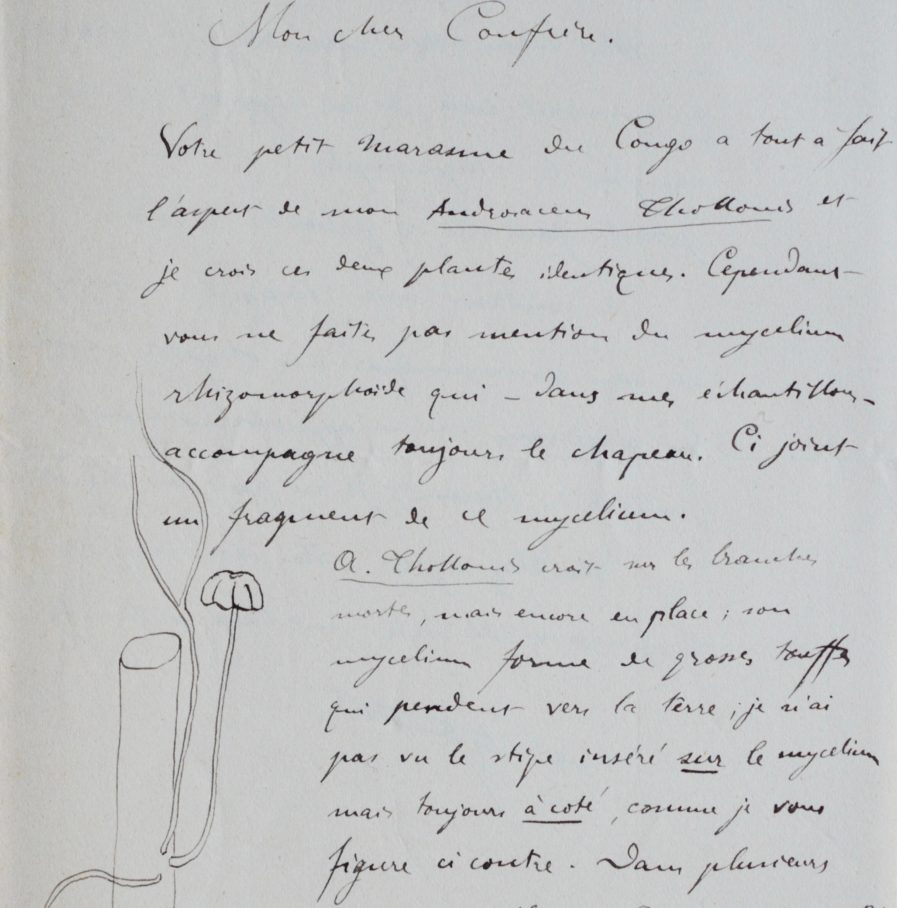 Mon cher Confrère.
Votre petit marasme du Congo a tout à fait
l'aspect de mon Androsaceus Thollonis et
je crois ces deux plantes identiques. Cependant
vous ne faites pas mention du mycelium
rhizomorphoïde qui – dans mes échantillons –
accompagne toujours le chapeau. Ci joint
un fragment de ce mycelium.
A. Thollonis croit sur les branches
mortes, mais encore en place ; son
mycelium forme de grosses touffes
qui pendent vers la terre ; je n'ai
pas vu le stipe inséré sur le mycelium
mais toujours à coté, comme je vous
figure ci contre. Dans plusieurs